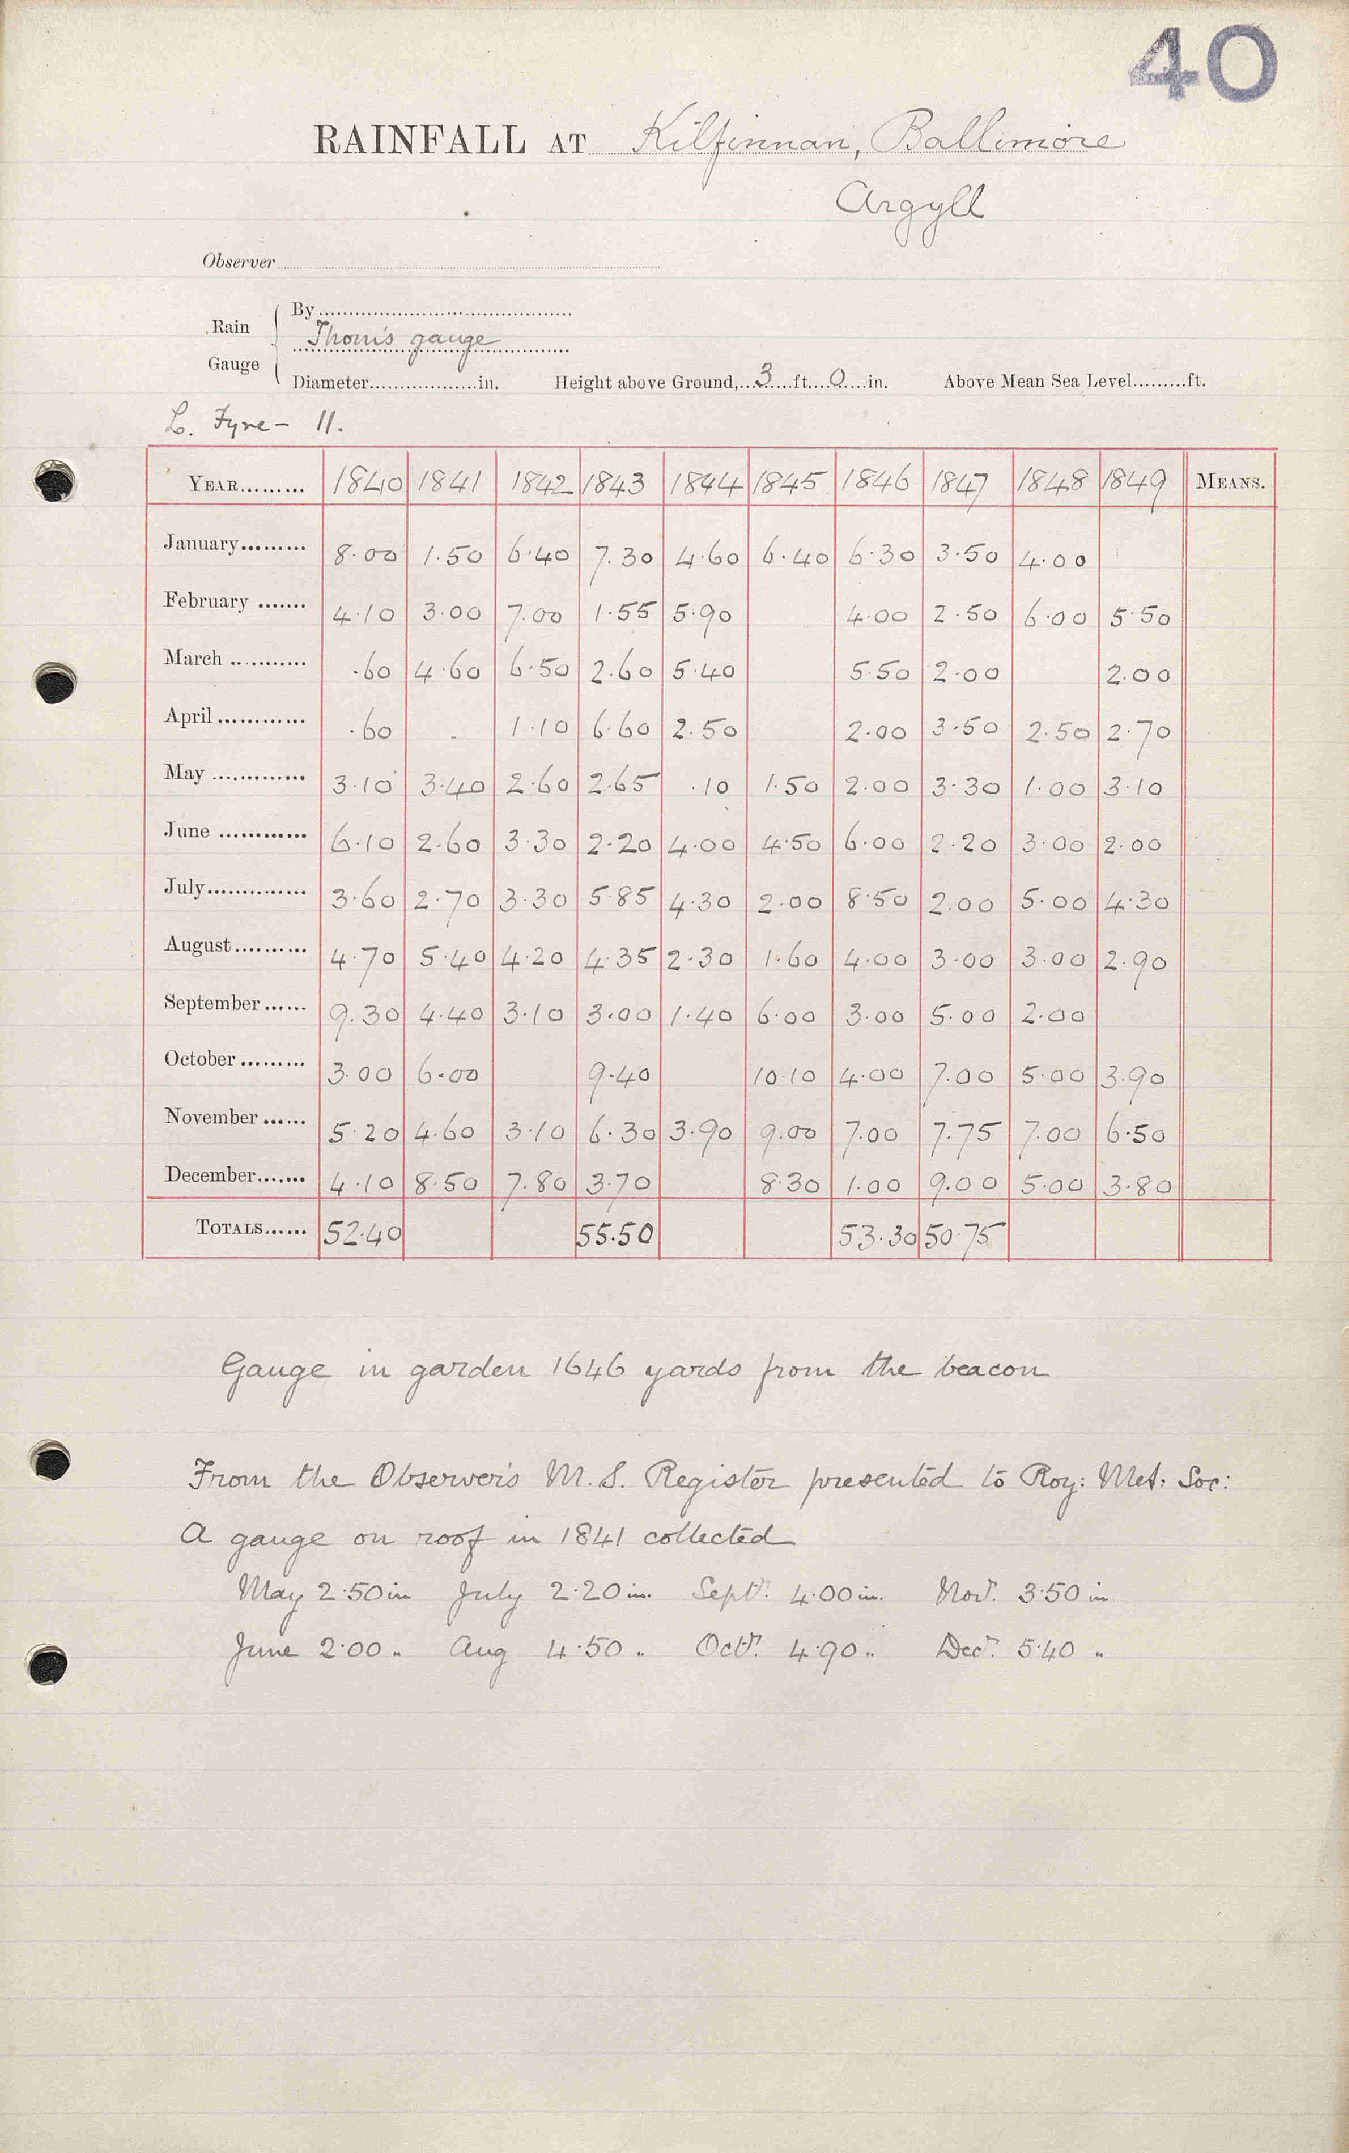 40
RAINFALL AT Kilfinnan, Ballimore
Argyll
Observer
Rain Gauge { By
Thom's gauge
Diameter in. Height above Ground, 3 ft. 0 in. Above Mean Sea Level ft.
L. Fyne - 11.
YEAR 1840 1841 1842 1843 1844 1845 1846 1847 1848 1849 MEANS.
January 8.00 1.50 6.40 7.30 4.60 6.40 6.30 3.50 4.00
February 4.10 3.00 7.00 1.55 5.90 4.00 2.50 6.00 5.50
March .60 4.60 6.50 2.60 5.40 5.50 2.00 2.00
April .60 . 1.10 6.60 2.50 2.00 3.50 2.50 2.70
May 3.10 3.40 2.60 2.65 .10 1.50 2.00 3.30 1.00 3.10
June 6.10 2.60 3.30 2.20 4.00 4.50 6.00 2.20 3.00 2.00
July 3.60 2.70 3.30 5.85 4.30 2.00 8.50 2.00 5.00 4.30
August 4.70 5.40 4.20 4.35 2.30 1.60 4.00 3.00 3.00 2.90
September 9.30 4.40 3.10 3.00 1.40 6.00 3.00 5.00 2.00
October 3.00 6.00 9.40 10.10 4.00 7.00 5.00 3.90
November 5.20 4.60 3.10 6.30 3.90 9.00 7.00 7.75 7.00 6.50
December 4.10 8.50 7.80 3.70 8.30 1.00 9.00 5.00 3.80
TOTALS 52.40 55.50 53.30 50.75
Gauge in garden 1646 yards from the beacon
From the Observer's M.S. Register presented to Roy: Met: Soc:
A gauge on roof in 1841 collected
May 2.50 in July 2.20 in. Septr. 4.00 in. Novr. 3.50 in
June 2.00 " Aug 4.50 " Octr. 4.90 " Decr. 5.40 "